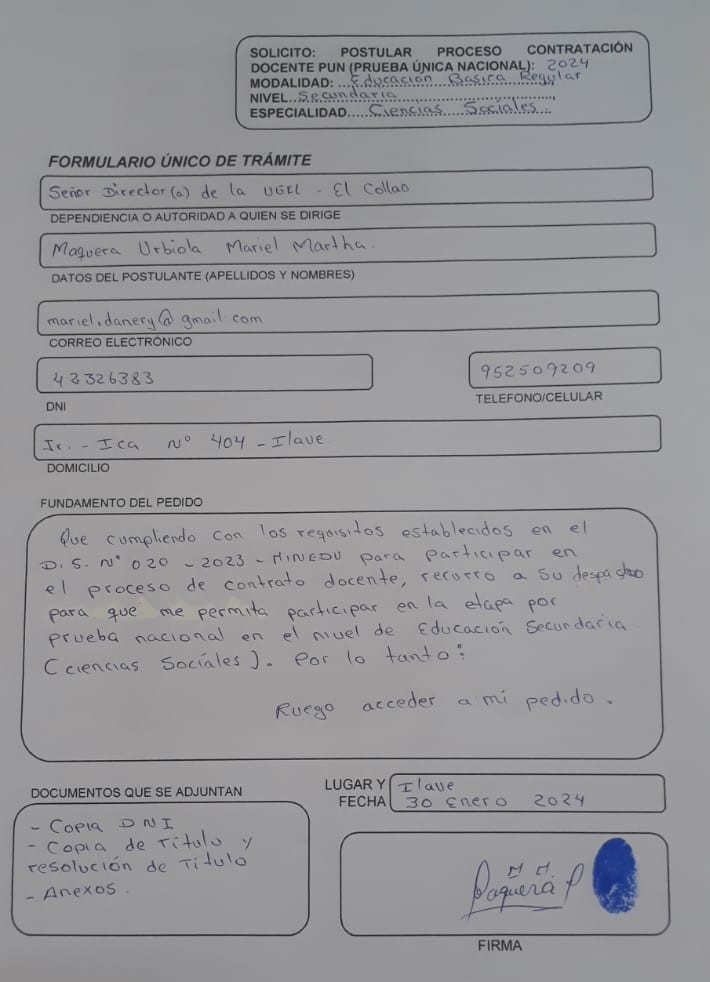 SOLICITO: POSTULAR PROCESO CONTRATACIÓN
DOCENTE PUN (PRUEBA ÚNICA NACIONAL): 2024
MODALIDAD: Educación Basica Regular
NIVEL Secundaria
ESPECIALIDAD Ciencias Sociales
FORMULARIO ÚNICO DE TRÁMITE
Señor Director(a) de la UGEL - El Collao
DEPENDENCIA O AUTORIDAD A QUIEN SE DIRIGE
Maquera Urbiola Mariel Martha.
DATOS DEL POSTULANTE (APELLIDOS Y NOMBRES)
mariel.danery@gmail.com
CORREO ELECTRÓNICO
43326383
952509209
DNI
TELEFONO/CELULAR
Jr. - Ica N° 404 - Ilave
DOMICILIO
FUNDAMENTO DEL PEDIDO
Que cumpliendo con los requisitos establecidos en el
D.S. N° 020 - 2023 - MINEDU para participar en
el proceso de contrato docente, recurro a su despacho
para que me permita participar en la etapa por
prueba nacional en el nivel de Educación Secundaria
(ciencias Sociales). Por lo tanto:
Ruego acceder a mi pedido.
DOCUMENTOS QUE SE ADJUNTAN
LUGAR Y
FECHA
Ilave
30 Enero 2024
- Copia DNI
- Copia de Título y
resolución de Título
- Anexos.
FIRMA